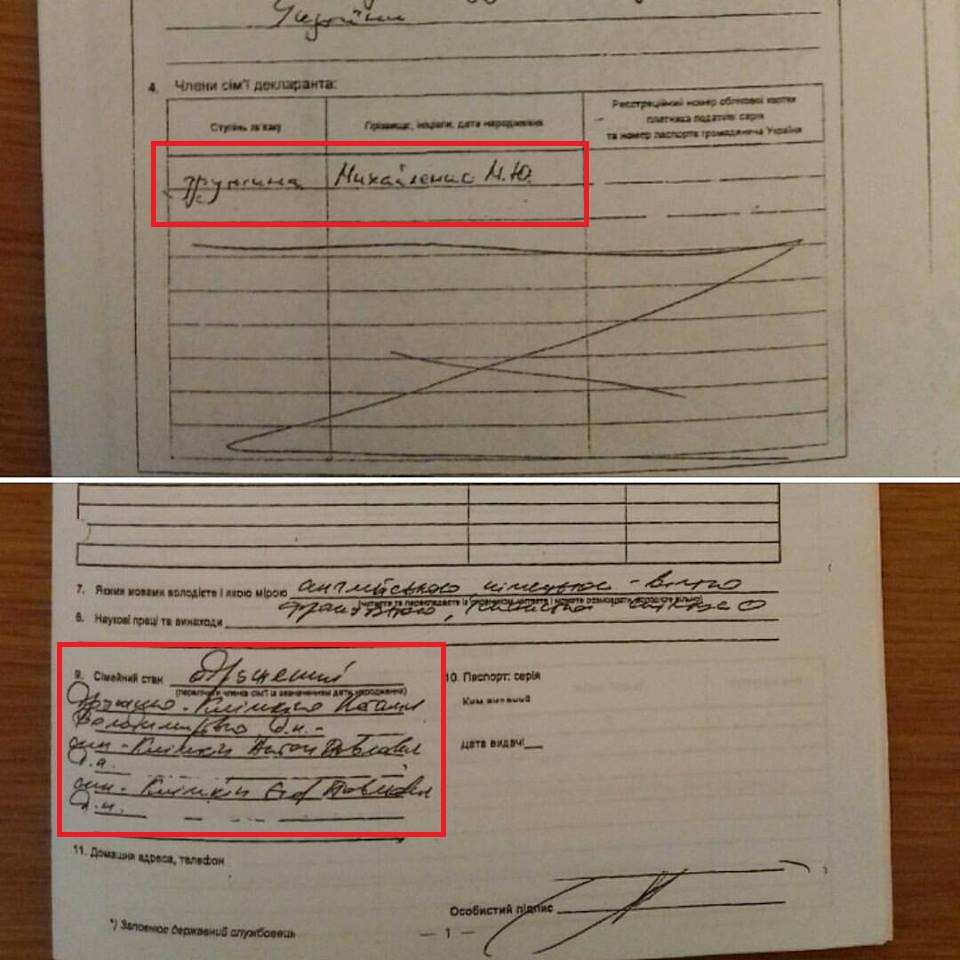 України
4. Члени сім'ї декларанта:
Ступінь зв'язку
Прізвище, ініціали, дата народження
Реєстраційний номер облікової картки
платника податків/ серія
та номер паспорта громадянина України
дружина Михайленко М.Ю.
7. Якими мовами володієте і якою мірою англійською, німецькою - вільно
(читаєте та перекладаєте із словником, читаєте і можете розмовляти, володієте вільно)
французькою,
8. Наукові праці та винаходи
9. Сімейний стан одружений
(перелічити членів сім'ї із зазначенням дати народження)
дружина - Клімкіна Наталя
Володимирівна д.н. -
син - Клімкін Антон Павлович
д.н.
син - Клімкін Павлович
д.н.
10. Паспорт: серія
Ким виданий
дата видачі
11. Домашня адреса, телефон
Особистий підпис
*) Заповнює державний службовець
— 1 —